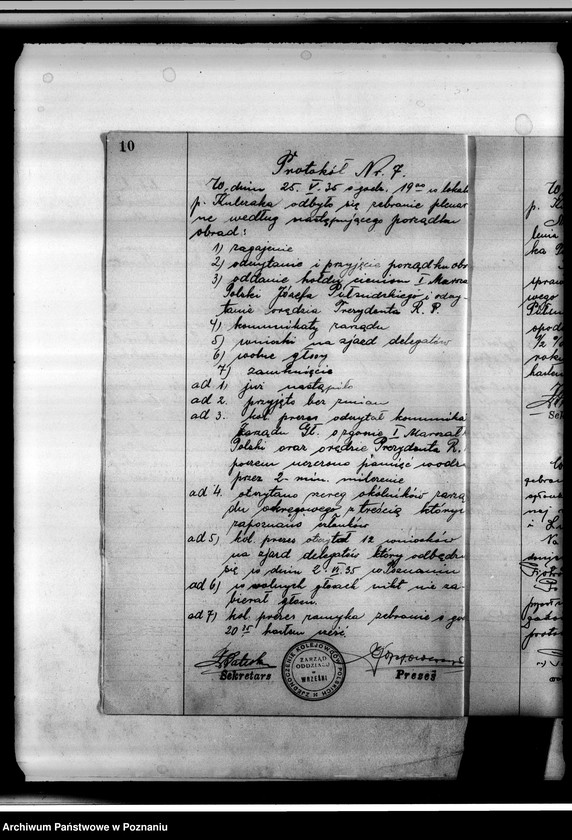 10
Protokół Nr. 7.
W dniu 25. V. 35 o godz. 19⁰⁰ w lokal
p. Kulczaka odbyło się zebranie plenar
ne według następującego porządku
obrad:
1) zagajenie
2) odczytanie i przyjęcie porządku obr
3) oddanie hołdu cieniom I Marsz
Polski Józefa Piłsudskiego i odczy-
tanie orędzia Prezydenta R. P.
4) komunikaty zarządu
5) wnioski na zjazd delegatów
6) wolne głosy
7) zamknięcie
ad 1) już nastąpiło
ad 2. przyjęto bez zmian
ad 3. kol. prezes odczytał komunika
Zarządu Gł. o zgonie I Marszał
Polski oraz orędzie Prezydenta R.
poczem uczczono pamięć wodza
przez 2-min. milczenie
ad 4. czytano szereg okólników zarzą
du okręgowego z treścią których
zapoznano członków
ad 5) kol. prezes 12 wniosków
na zjazd delegatów który odbędzie
się w dniu 2. 35 w Poznaniu
ad 6) w wolnych głosach nikt nie za-
bierał głosu.
ad 7) kol. prezes zamyka zebranie o go
20 hasłem cześć.
Sekretarz
Prezes
ZJEDNOCZENIE KOLEJOWCÓW POLSKICH
ZARZĄD
ODDZIAŁU
w
WRZEŚNI
Archiwum Państwowe w Poznaniu